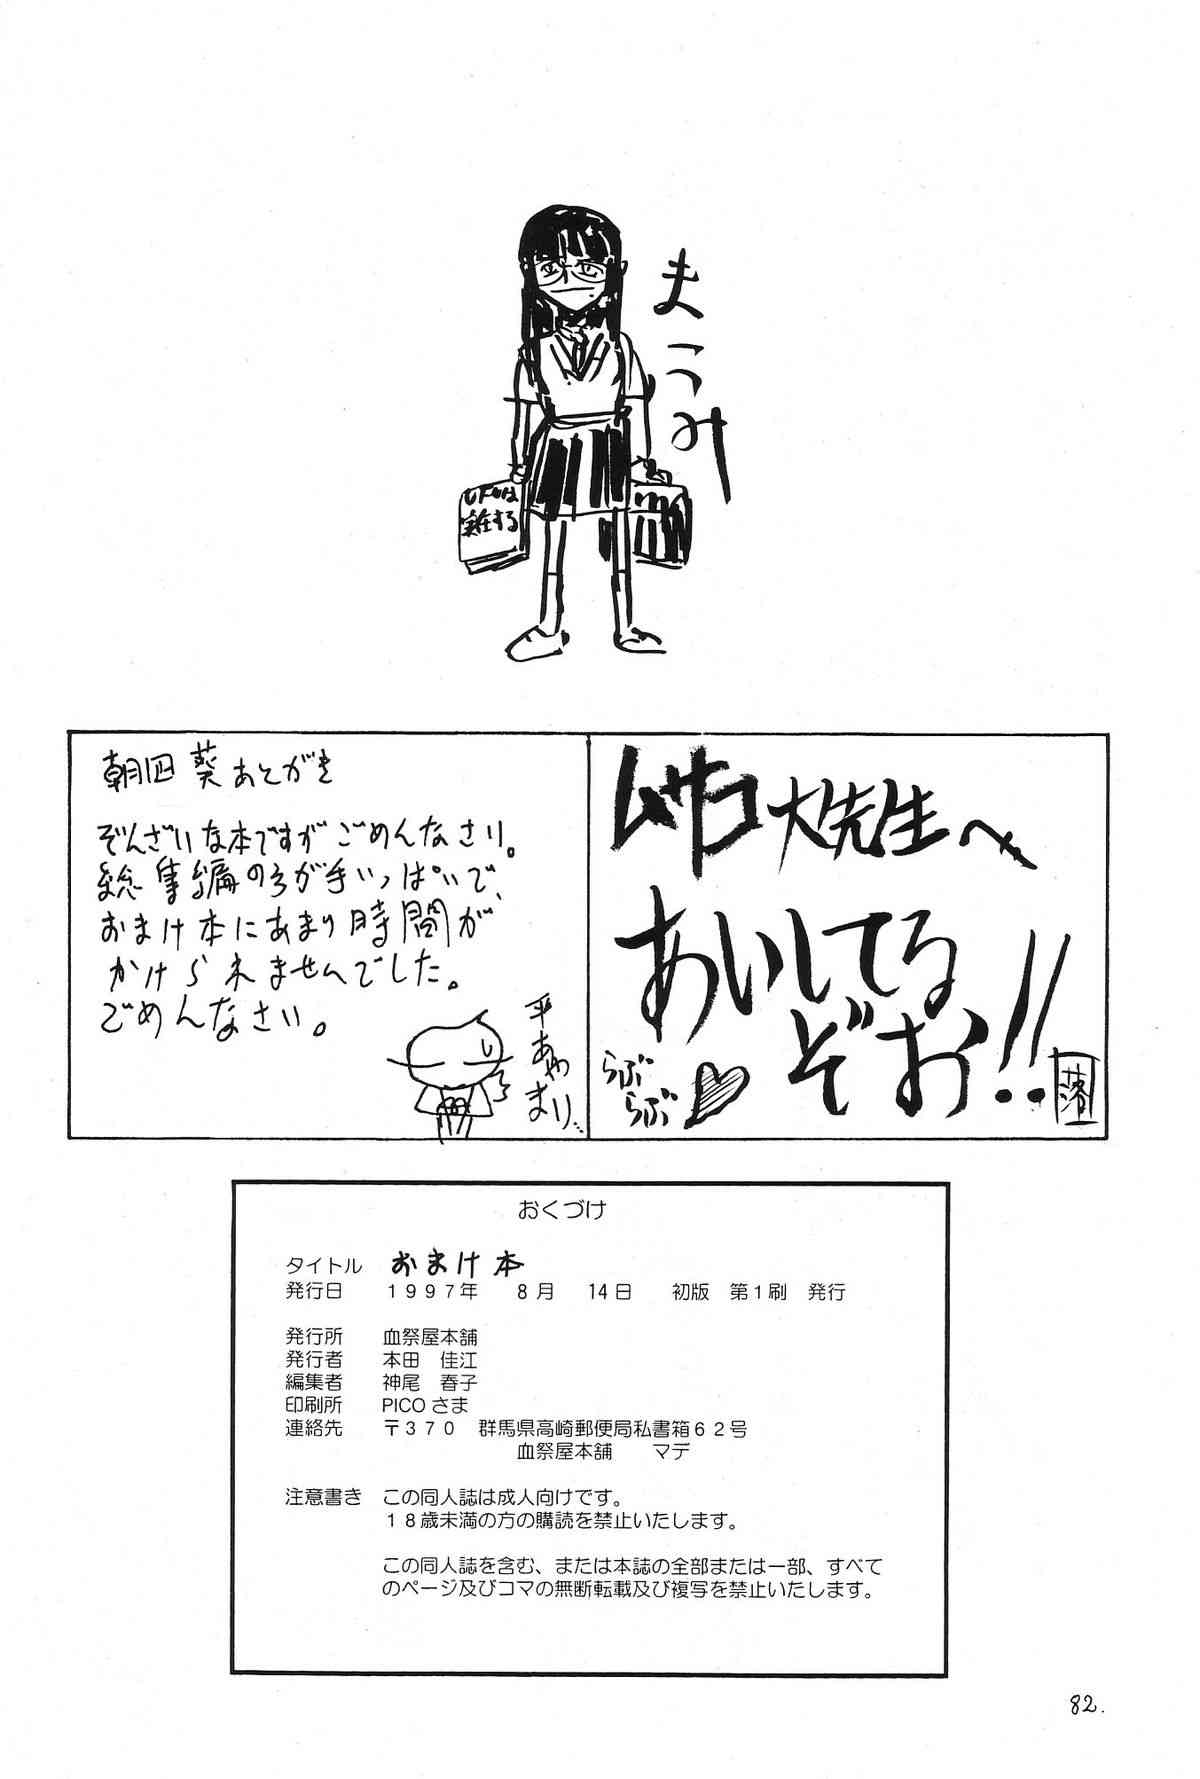 まこみ
UFOは
実在する
ムサコ大先生へ
あいしてる
ぞお!!
らぶ
らぶ
落
朝凪 葵 あとがき
ぞんざいな本ですがごめんなさい。
総集編のうが手いっぱいで、
おまけ本にあまり時間が
かけられませんでした。
ごめんなさい。
平あやまり…
おくづけ
タイトル おまけ本
発行日 1997年 8月 14日 初版 第1刷 発行
発行所 血祭屋本舗
発行者 本田 佳江
編集者 神尾 春子
印刷所 PICOさま
連絡先 〒370 群馬県高崎郵便局私書箱62号
血祭屋本舗 マデ
注意書き この同人誌は成人向けです。
18歳未満の方の購読を禁止いたします。
この同人誌を含む、または本誌の全部または一部、すべて
のページ及びコマの無断転載及び複写を禁止いたします。
82.